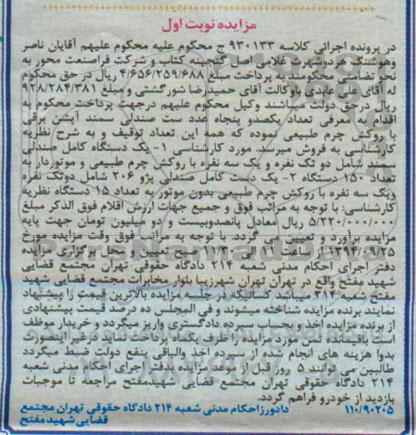 مزایده نوبت اول
در پرونده اجرائی کلاسه ۹۳۰۱۳۳ ج محکوم علیه محکوم علیهم آقایان ناصر
وهوشنگ هردوشهرت غلامی اصل گنجینه کتاب و شرکت فراصنعت محور به
نحو تضامنی محکومند به پرداخت مبلغ ۴/۶۵۶/۲۵۹/۶۸۸ ریال در حق محکوم
له آقای علی عابدی باوکالت آقای حمیدرضا شورگشتی و مبلغ ۹۲۸/۲۸۴/۳۸۱
ریال در حق دولت میباشند وکیل محکوم علیهم درجهت پرداخت محکوم به
اقدام به معرفی تعداد یکصدو پنجاه عدد ست صندلی سمند آپشن برقی
با روکش چرم طبیعی نموده که همه این تعداد توقیف و به شرح نظریه
کارشناسی به فروش میرسد. مورد کارشناسی ۱- یک دستگاه کامل صندلی
سمند شامل دو تک نفره و یک سه نفره با روکش چرم طبیعی و موتوردار به
تعداد ۱۵۰ دستگاه ۲- یک دست کامل صندلی پژو ۲۰۶ شامل دوتک نفره
ویک سه نفره با روکش چرم طبیعی بدون موتور به تعداد ۱۵ دستگاه نظریه
کارشناسی: با توجه به مراتب فوق و جمیع جهات ارزش اقلام فوق الذکر مبلغ
۵/۲۲۰/۰۰۰/۰۰۰ ریال معادل پانصدوبیست و دو میلیون تومان جهت پایه
مزایده برآورد و تعیین می گردد. با توجه به مراتب فوق وقت مزایده مورخ
۱۳۹۴/۰۹/۲۵ ساعت ۱۱ الی ۱۲ صبح تعیین و محل برگزاری مزایده
دفتر اجرای احکام مدنی شعبه ۲۱۴ دادگاه حقوقی تهران مجتمع قضایی
شهید مفتح واقع در تهران تهران شهرزیبا بلوار مخابرات مجتمع قضایی شهید
مفتح شعبه ۲۱۴ میباشد کسانیکه در جلسه مزایده بالاترین قیمت را پیشنهاد
نمایند برنده مزایده شناخته میشوند و فی المجلس ده درصد قیمت پیشنهادی
از برنده مزایده اخذ و بحساب سپرده دادگستری واریز میگردد و خریدار موظف
است باقیمانده ثمن مورد مزایده را ظرف یکماه پرداخت نماید درغیر اینصورت
بدوا هزینه های انجام شده از سپرده اخذ والباقی بنفع دولت ضبط میگردد
طالبین می توانند ۵ روز قبل از موعد مزایده بدفتر اجرای احکام مدنی شعبه
۲۱۴ دادگاه حقوقی تهران مجتمع قضایی شهیدمفتح مراجعه تا موجبات
بازدید از خودرو فراهم گردد.
۱۱۰/۹۰۲۰۵ دادورز احکام مدنی شعبه ۲۱۴ دادگاه حقوقی تهران مجتمع
قضایی شهید مفتح